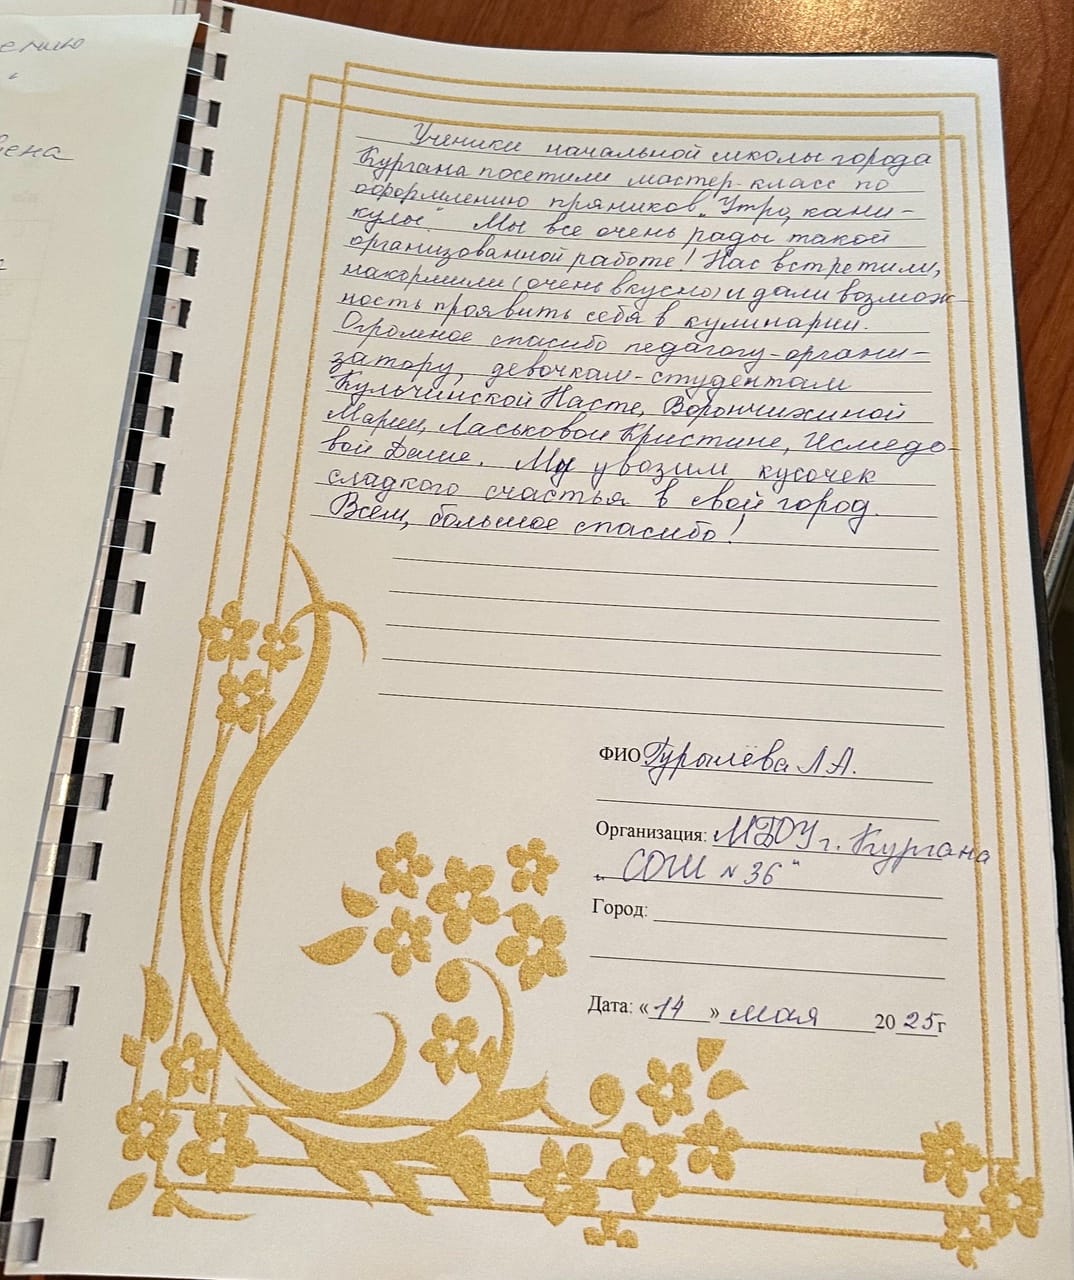 ению
вена
Ученики начальной школы города
Кургана посетили мастер-класс по
оформлению пряников „Утро, кани-
кулы". Мы все очень рады такой
организованной работе! Нас встретили,
накормили (очень вкусно) и дали возмож-
ность проявить себя в кулинарии.
Огромное спасибо педагогу-органи-
затору, девочкам-студентам
Кульчинской Насте, Ворончихиной
Марии, Ласьковой Кристине, Исмедо-
вой Даше. Мы увозим кусочек
сладкого счастья в свой город.
Всем, большое спасибо!
ФИО Гурылёва Л.А.
Организация: МБОУ г. Кургана
„СОШ N 36"
Город:
Дата: «14» мая 2025г